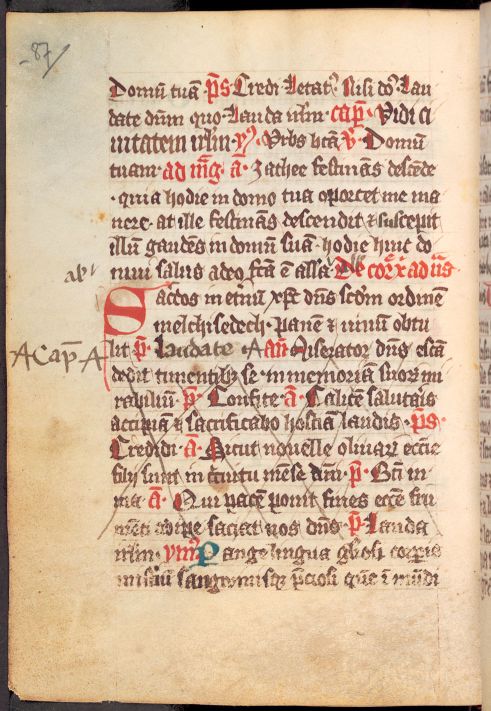 87
Domū tuā ps Credi letat⁹ Nisi dō⁹ lau
date dūm quo lauda irlm cap̄ Vidi ci
uitatem irlm Vrbs btā v̄ Domū
tuam ad mg̅ a̅ Zachee festinās descēde
quia hodie in domo tua oportet me ma
nere at ille festinās descendit & suscepit
illū gaudēs in domū suā hodie huic do
mui salus a deo fc̄a ē allā De corꝫ xͥ ad
Sacͨdos in et̄nū xp̄c dn̄s scd̄m ordinē
melchisedech panē & uinū obtu
lit p̄ laudate A an̄ Miserator dn̄s escā
Acap̄ A
dedit timentibꝫ se in memoriā suoꝝ mi
rabiliū p̄ Confite a̅ Calicē salutaris
accipiā & sacrificabo hostiā laudis ps̄
Credidi a̅ Sicut nouelle oliuaꝝ eccīe
filij sint in circuitu mēse dn̄i p̄ Bt̄i
a̅ Qui pacē ponit fines eccē fru
mēti adipe saciat nos dn̄s p̄ Lauda
irlm ym⁹ Pange lingua glōsi corpis
misteriū sanguinisqꝫ p̄ciosi quē ī mūdi